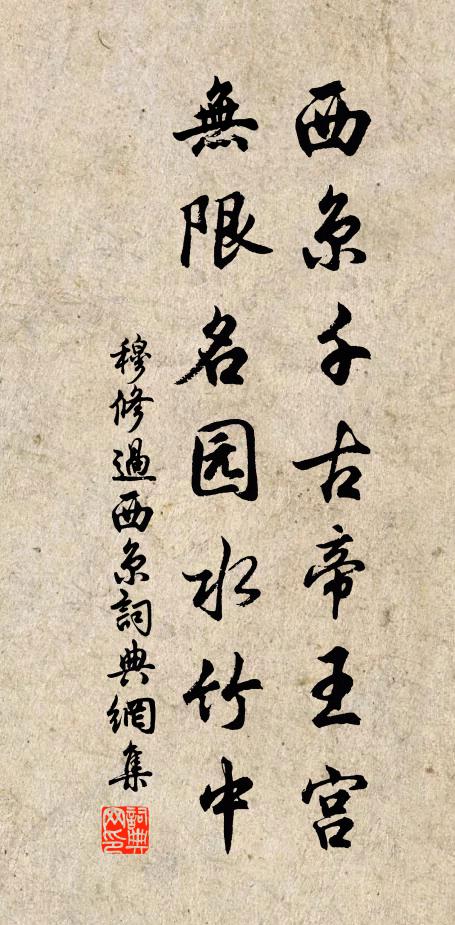 西京千古帝王宫
無限名园水竹中
穆修過西京詞典網集
詞典网印